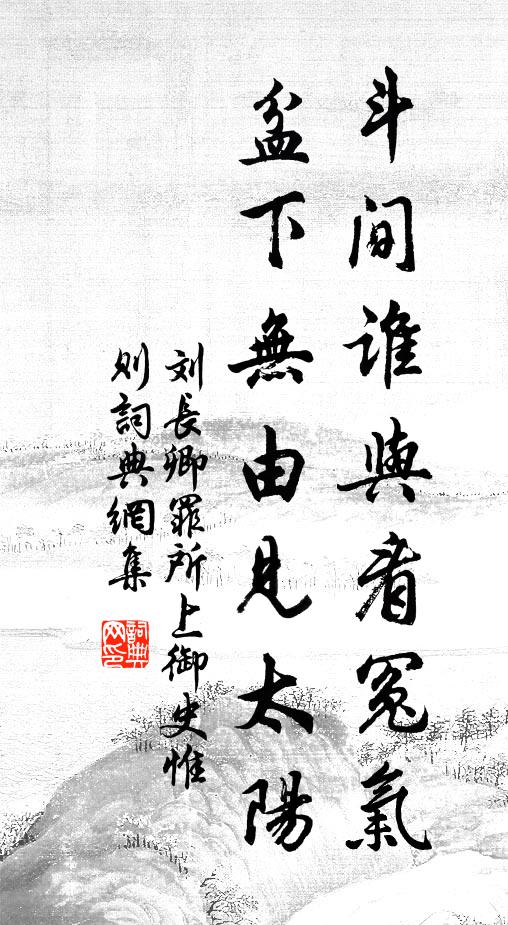 斗間誰與看冤氣
盆下無由見太陽
刘長卿罪所上御史惟
則詞典網集
詞典網印